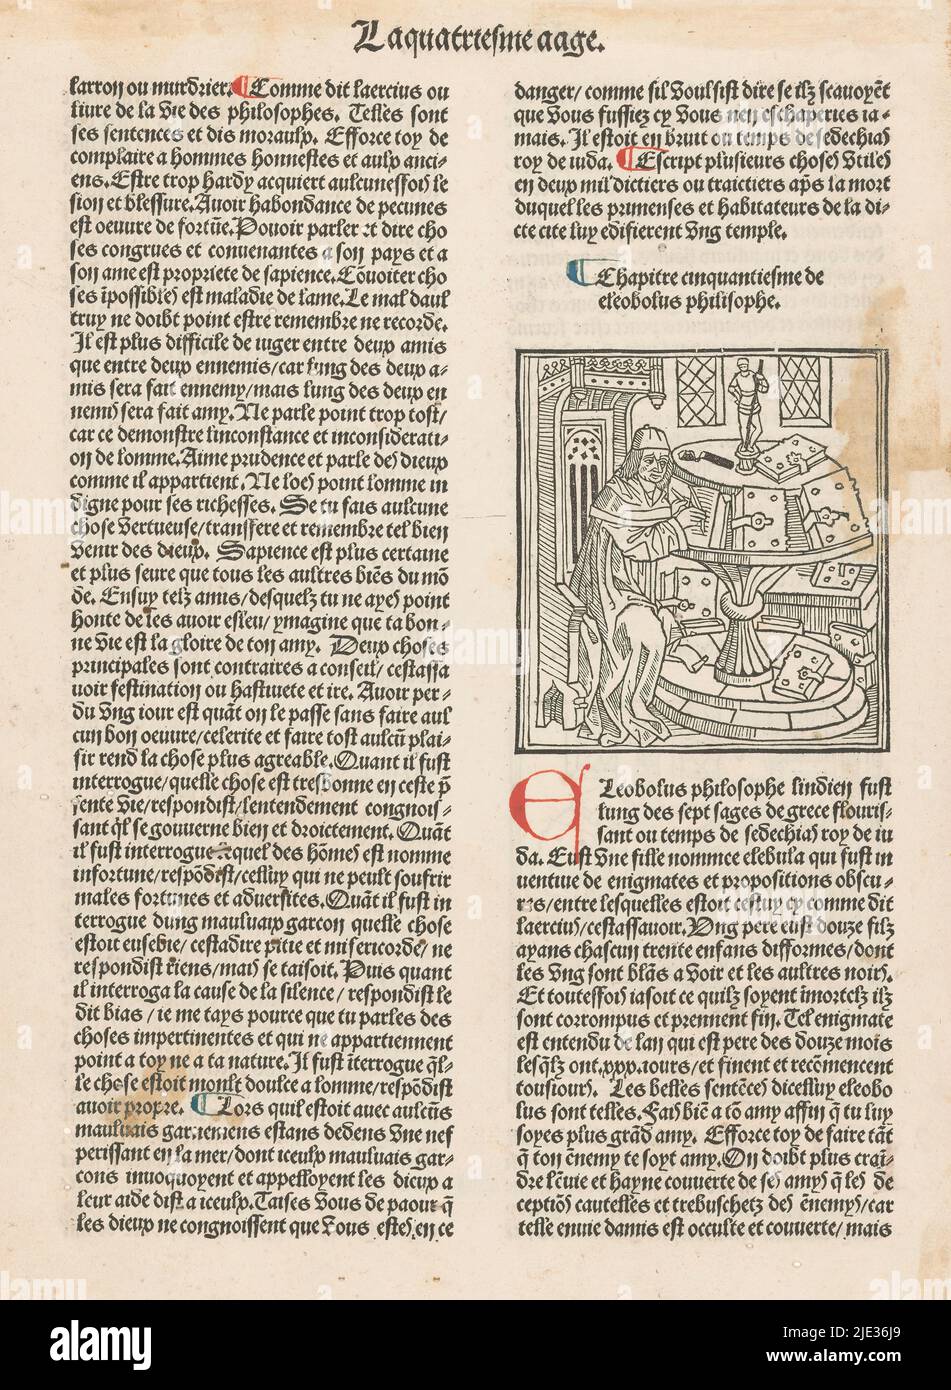 Laquatriesme aage.
larron ou murdrier. Comme dit laercius ou
liure de la vie des philosophes. Telles sont
ses sentences et dis moraulx. Efforce toy de
complaire a hommes honnestes et aulx anci-
ens. Estre trop hardy acquiert aulcuneffois le
sion et blessure. Auoir habondance de pecunes
est oeuure de fortūe. Pouoir parler et dire cho
ses congrues et conuenantes a son pays et a
son ame est propriete de sapience. Cōuoiter cho
ses īpossibles est maladie de lame. Le mal daul
truy ne doibt point estre remembre ne recorde.
Il est plus difficile de iuger entre deux amis
que entre deux ennemis/car lung des deux a-
mis sera fait ennemy/mais lung des deux en
nemys sera fait amy. Ne parle point trop tost/
car ce demonstre linconstance et inconsiderati-
on de lomme. Aime prudence et parle des dieux
comme il appartient. Ne loes point lomme in
digne pour ses richesses. Se tu fais aulcune
chose vertueuse/transfere et remembre tel bien
venir des dieux. Sapience est plus certaine
et plus seure que tous les aultres biēs du mō
de. Ensuy telz amis/desquelz tu ne ayes point
honte de les auoir esleu/ymagine que ta bon-
ne vie est la gloire de ton amy. Deux choses
principales sont contraires a conseil/cestassa
uoir festination ou hastiuete et ire. Auoir per-
du vng iour est quāt on le passe sans faire aul
cun bon oeuure/celerite et faire tost aulcū plai-
sir rend la chose plus agreable. Quant il fust
interrogue/quelle chose est tresbonne en ceste p̄
sente vie/respondist/lentendement congnois-
sant q̄l se gouuerne bien et droictement. Quāt
il fust interrogue quel des hōmes est nomme
infortune/respōdist/celluy qui ne peult souffrir
males fortunes et aduersites. Quāt il fust in
terrogue dung mauluaix garcon quelle chose
estoit eusebie/cestadire pitie et misericorde/ne
respondist riens/mais se taisoit. Puis quant
il interroga la cause de la silence/respondist le
dit bias/ie me tays pource que tu parles des
choses impertinentes et qui ne appartiennent
point a toy ne a ta nature. Il fust īterrogue q̄l-
le chose estoit moult doulce a lomme/respōdist
auoir propre. Lors quil estoit auec aulcūs
mauluais garnemens estans dedens vne nef
perissant en la mer/dont iceulx mauluais gar-
cons inuoquoyent et appelloyent les dieux a
leur aide dist a iceulx. Taises vous de paour q̄
les dieux ne congnoissent que vous estes en ce
danger/comme sil voulsist dire se ilz scauoyēt
que vous fussiez cy vous nen eschaperies ia-
mais. Il estoit en bruit ou temps de sedechias
roy de iuda. Escript plusieurs choses vtiles
en deux mil dictiers ou traictiers ap̄s la mort
duquel les primenses et habitateurs de la di-
cte cite luy edifierent vng temple.
Chapitre cinquantiesme de
cleobolus philisophe.
Cleobolus philosophe lindien fust
lung des sept sages de grece flouris-
sant ou temps de sedechias roy de iu
da. Eust vne fille nommee clebula qui fust in
uentiue de enigmates et propositions obscu-
res/entre lesquelles estoit cestuy cy comme dit
laercius/cestassauoir. Vng pere eust douze filz
ayans chascun trente enfans difformes/dont
les vng sont blās a voir et les aultres noirs.
Et touteffois iasoit ce quilz soyent īmortelz ilz
sont corrompus et prennent fin. Tel enigmate
est entendu de lan qui est pere des douze mois
lesq̄lz ont.xxx.iours/et finent et recōmencent
tousiours. Les belles sentēces dicelluy cleobo
lus sont telles. Fais biē a tō amy affin q̄ tu luy
soyes plus grād amy. Efforce toy de faire tāt
q̄ ton ēnemy te soyt amy. On doibt plus craī-
dre lēuie et hayne couuerte de ses amys q̄ les de
ceptiōs cautelles et trebuschetz des ēnemys/car
telle enuie damis est occulte et couuerte/mais
alamy
Image ID: 2JE36J9
www.alamy.com